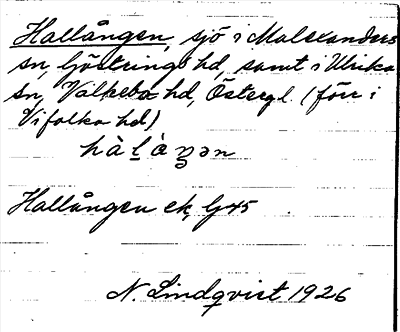 Hallången, sjö i Malexanders
sn, Göstrings hd, samt i Ulrika
sn, Valkebo hd, Östergl. (förr i
Vifolka hd)
hàḷàŋən
Hallången ek, G45
N. Lindqvist 1926